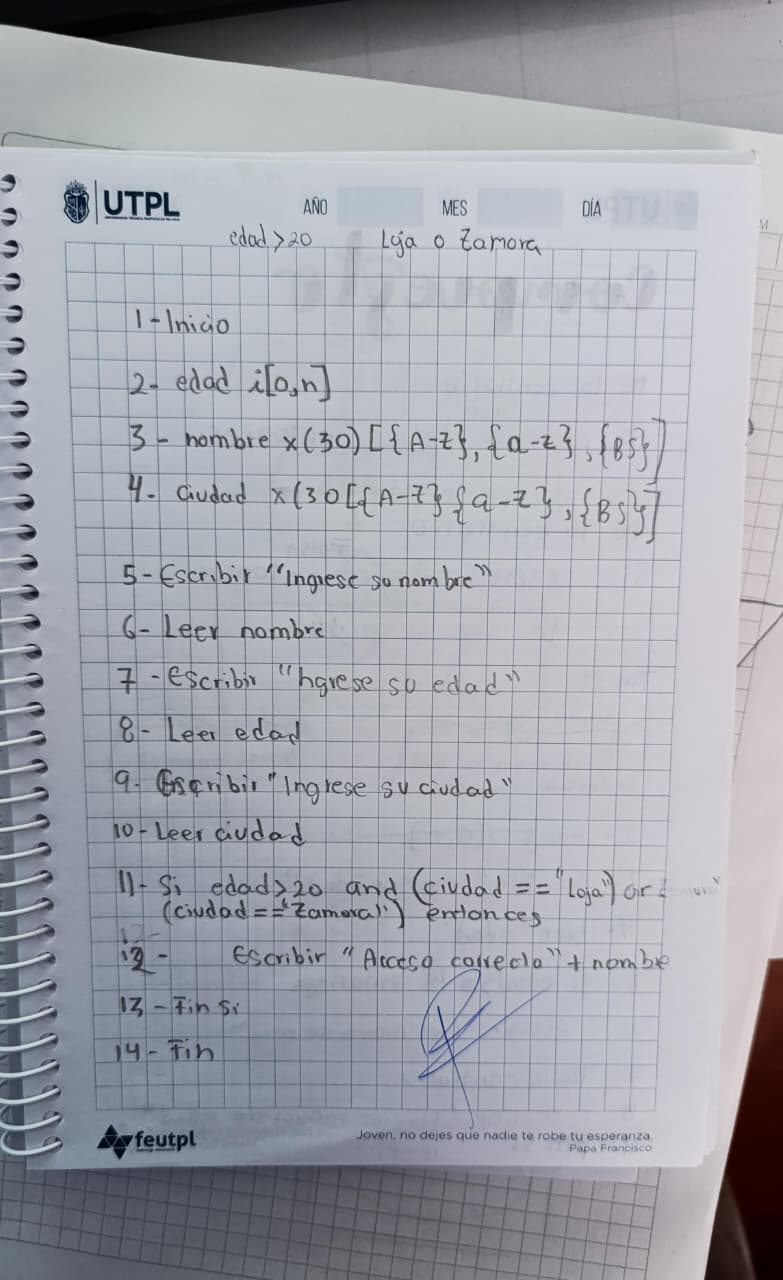 UTPL
AÑO MES DÍA
edad > 20 Loja o Zamora
1 - Inicio
2 - edad i[0,n]
3 - nombre x(30) [{A-Z}, {a-z}, {BS}]
4 - Ciudad x(30 [{A-Z} {a-z}, {BS}]
5 - Escribir "Ingrese su nombre"
6 - Leer nombre
7 - Escribir "Ingrese su edad"
8 - Leer edad
9 - Escribir "Ingrese su ciudad"
10 - Leer ciudad
11 - Si edad > 20 and (ciudad == "Loja") or
(ciudad == "Zamora") entonces
12 - Escribir "Acceso correcto" + nombre
13 - Fin Si
14 - Fin
feutpl
Joven, no dejes que nadie te robe tu esperanza.
Papa Francisco